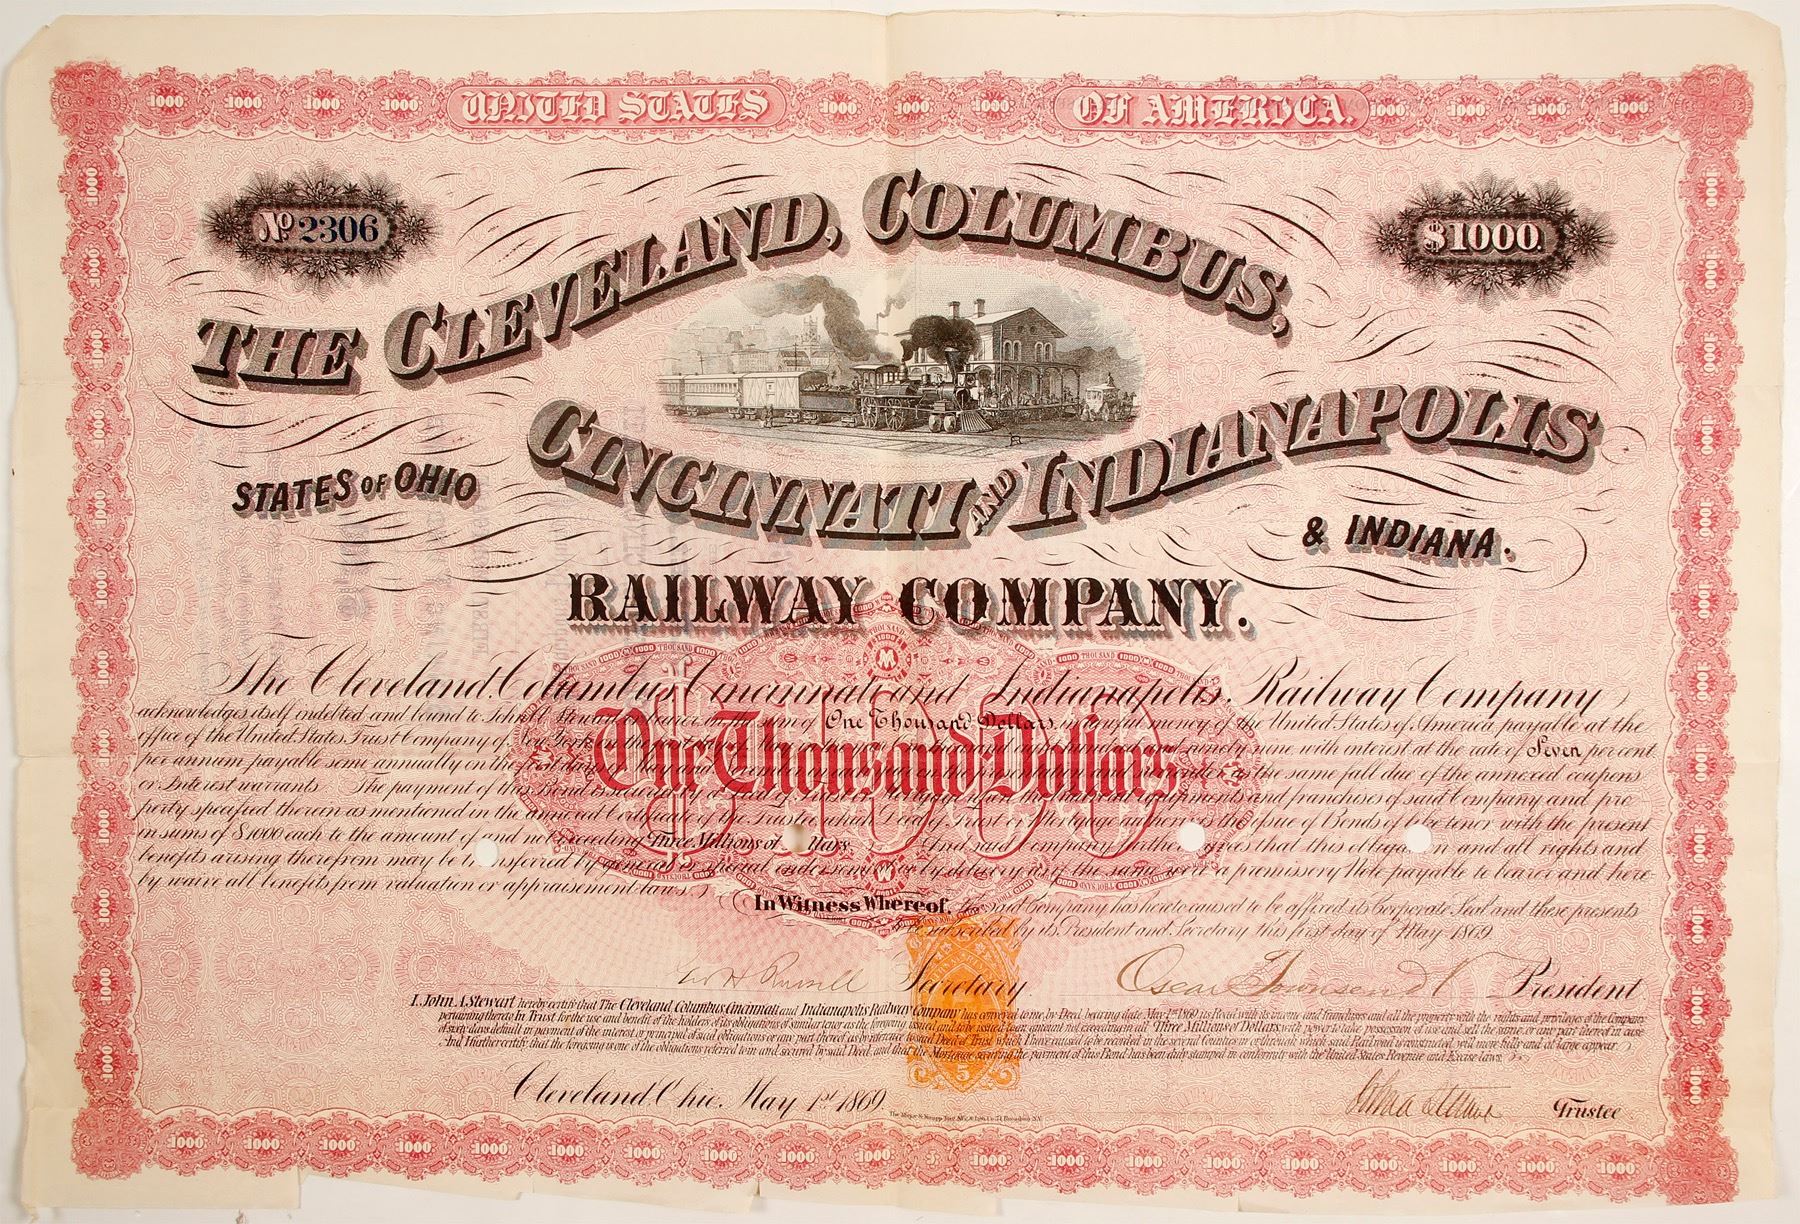 UNITED STATES OF AMERICA.
No 2306
$1000.
THE CLEVELAND, COLUMBUS,
CINCINNATI AND INDIANAPOLIS
STATES OF OHIO
& INDIANA.
RAILWAY COMPANY.
The Cleveland, Columbus, Cincinnati and Indianapolis, Railway Company
acknowledges itself indebted and bound to John A. Stewart or bearer in the sum of One Thousand Dollars, in lawful money of the United States of America payable at the
office of the United States Trust Company of New York on the first day of May one thousand eight hundred and ninety nine with interest at the rate of Seven per cent
per annum payable semi annually on the first days of May and November in each year on the presentation and surrender as the same fall due of the annexed coupons
or Interest warrants The payment of this Bond is secured by a Deed of Trust or Mortgage upon the railroad equipments and franchises of said Company and pro-
perty specified therein as mentioned in the annexed Certificate of the Trustee which Deed of Trust or Mortgage authorizes the issue of Bonds of like tenor with the present
in sums of $1000 each to the amount of and not exceeding Three Millions of Dollars. And said Company further agrees that this obligation and all rights and
benefits arising therefrom may be transferred by general or special endorsement or by delivery as if the same were a promissory Note payable to bearer and here-
by waive all benefits from valuation or appraisement laws.
In Witness Whereof, the said Company has hereto caused to be affixed its Corporate Seal and these presents
to be subscribed by its President and Secretary this first day of May 1869
One Thousand Dollars
Secretary
Oscar Townsend V President
I, John A. Stewart hereby certify that The Cleveland Columbus Cincinnati and Indianapolis Railway Company has conveyed to me, by Deed bearing date May 1st 1869 its Road with its income and franchises and all the property with the rights and privileges of the Company
pertaining thereto In Trust for the use and benefit of the holders of its obligations of similar tenor as the foregoing issued and to be issued to an amount not exceeding in all Three Millions of Dollars with power to take possession of use and sell the same, or any part thereof in case
of sixty days default in payment of the interest or principal of said obligations or any part thereof as by reference to said Deed of Trust which I have caused to be recorded in the several Counties in or through which said Railroad is constructed will more fully and at large appear.
And I further certify that the foregoing is one of the obligations referred to in and secured by said Deed, and that the Mortgage securing the payment of this Bond has been duly stamped in conformity with the United States Revenue and Excise laws.
Cleveland Ohio, May 1st 1869.
John A Stewart Trustee